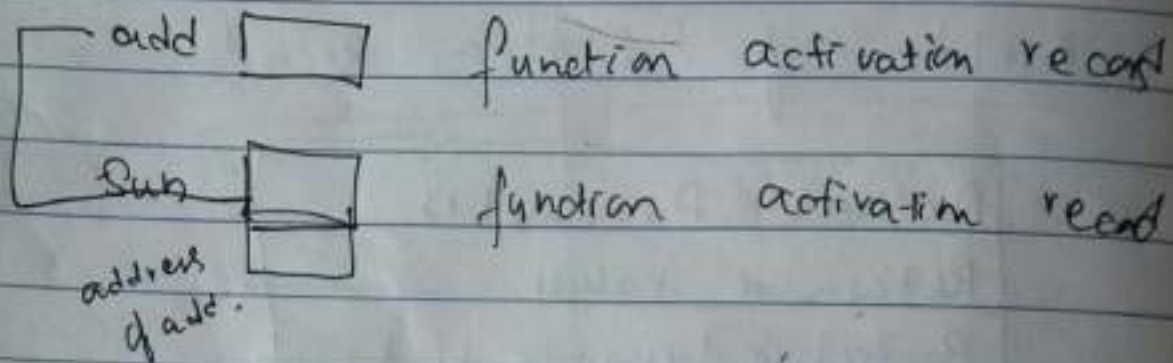 add function activation record
Sub function activation record
address
of add.